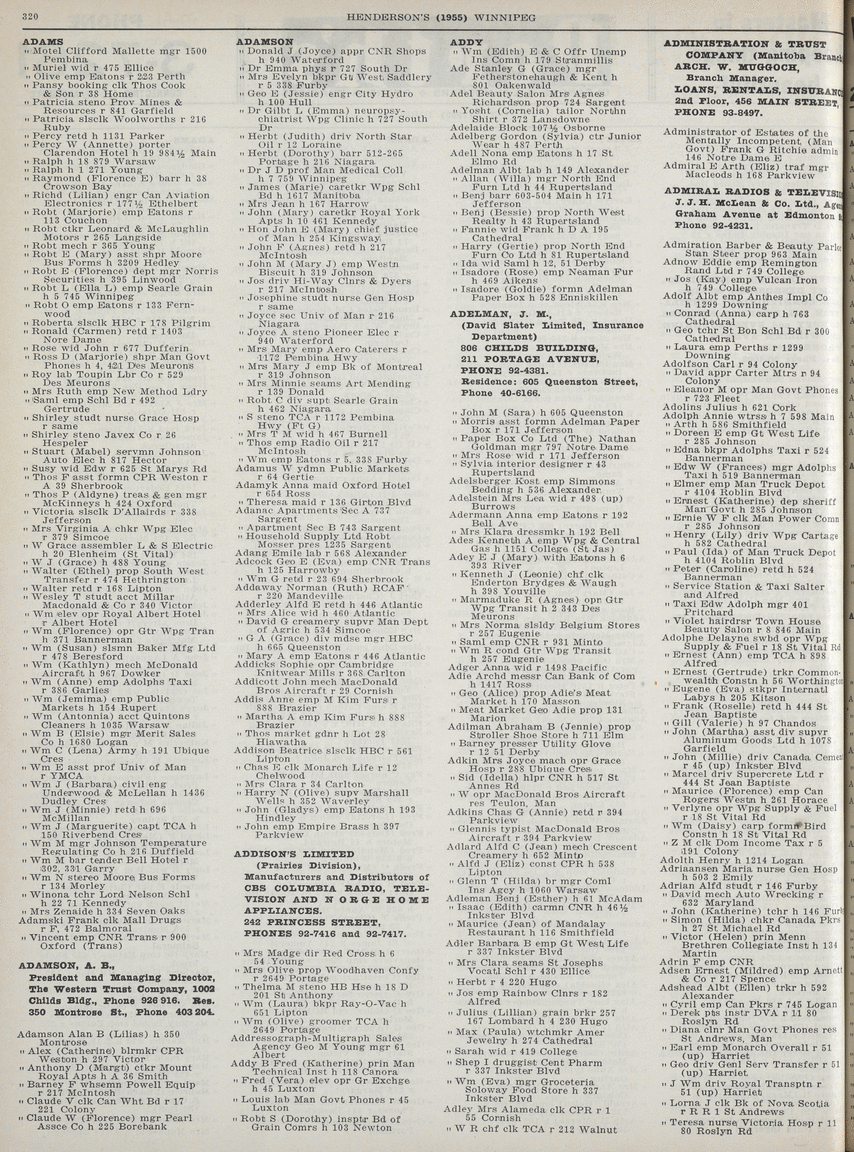 320
HENDERSON'S (1955) WINNIPEG
ADAMS
" Motel Clifford Mallette mgr 1500
Pembina
" Muriel wid r 475 Ellice
" Olive emp Eatons r 223 Perth
" Pansy booking clk Thos Cook
& Son r 38 Home
" Patricia steno Prov Mines &
Resources r 841 Garfield
" Patricia slsclk Woolworths r 216
Ruby
" Percy retd h 1131 Parker
" Percy W (Annette) porter
Clarendon Hotel h 19 984½ Main
" Ralph h 18 879 Warsaw
" Ralph h 1 271 Young
" Raymond (Florence E) barr h 38
Crowson Bay
" Richd (Lilian) engr Can Aviation
Electronics r 177½ Ethelbert
" Robt (Marjorie) emp Eatons r
113 Couchon
" Robt ctkr Leonard & McLaughlin
Motors r 265 Langside
" Robt mech r 365 Young
" Robt E (Mary) asst shpr Moore
Bus Forms h 3209 Hedley
" Robt E (Florence) dept mgr Norris
Securities h 395 Linwood
" Robt L (Ella L) emp Searle Grain
h 5 745 Winnipeg
" Robt O emp Eatons r 133 Fern-
wood
" Roberta slsclk HBC r 178 Pilgrim
" Ronald (Carmen) retd r 1403
Notre Dame
" Rose wid John r 677 Dufferin
" Ross D (Marjorie) shpr Man Govt
Phones h 4, 421 Des Meurons
" Roy lab Toupin Lbr Co r 529
Des Meurons
" Mrs Ruth emp New Method Ldry
" Saml emp Schl Bd r 492
Gertrude
" Shirley studt nurse Grace Hosp
r same
" Shirley steno Javex Co r 26
Hespeler
" Stuart (Mabel) servmn Johnson
Auto Elec h 817 Hector
" Susy wid Edw r 625 St Marys Rd
" Thos F asst formn CPR Weston r
A 39 Sherbrook
" Thos P (Aldyne) treas & gen mgr
McKinneys h 424 Oxford
" Victoria slsclk D'Allairds r 338
Jefferson
" Mrs Virginia A chkr Wpg Elec
r 379 Simcoe
" W Grace assembler L & S Electric
h 20 Blenheim (St Vital)
" W J (Grace) h 488 Young
" Walter (Ethel) prop South West
Transfer r 474 Hethrington
" Walter retd r 168 Lipton
" Wesley T studt acct Millar
Macdonald & Co r 340 Victor
" Wm elev opr Royal Albert Hotel
r Albert Hotel
" Wm (Florence) opr Gtr Wpg Tran
h 371 Bannerman
" Wm (Susan) slsmn Baker Mfg Ltd
r 478 Beresford
" Wm (Kathlyn) mech McDonald
Aircraft h 967 Dowker
" Wm (Anne) emp Adolphs Taxi
r 386 Garlies
" Wm (Jemima) emp Public
Markets h 154 Rupert
" Wm (Antonnia) acct Quintons
Cleaners h 1035 Warsaw
" Wm B (Elsie) mgr Merit Sales
Co h 1680 Logan
" Wm C (Lena) Army h 191 Ubique
Cres
" Wm E asst prof Univ of Man
r YMCA
" Wm J (Barbara) civil eng
Underwood & McLellan h 1436
Dudley Cres
" Wm J (Minnie) retd h 696
McMillan
" Wm J (Marguerite) capt TCA h
150 Riverbend Cres
" Wm M mgr Johnson Temperature
Regulating Co h 216 Duffield
" Wm M bar tender Bell Hotel r
302, 331 Garry
" Wm N stereo Moore Bus Forms
r 134 Morley
" Winona tchr Lord Nelson Schl
h 22 71 Kennedy
" Mrs Zenaide h 334 Seven Oaks
Adamski Frank clk Mall Drugs
r F, 472 Balmoral
" Vincent emp CNR Trans r 900
Oxford (Trans)
ADAMSON, A. B.,
President and Managing Director,
The Western Trust Company, 1002
Childs Bldg., Phone 926 916. Res.
350 Montrose St., Phone 403 204.
Adamson Alan B (Lilias) h 350
Montrose
" Alex (Catherine) blrmkr CPR
Weston h 297 Victor
" Anthony D (Margt) ctkr Mount
Royal Apts h A 36 Smith
" Barney F whsemn Powell Equip
r 217 McIntosh
" Claude V clk Can Wht Bd r 17
221 Colony
" Claude W (Florence) mgr Pearl
Assce Co h 225 Borebank
ADAMSON
" Donald J (Joyce) appr CNR Shops
h 940 Waterford
" Dr Emma phys r 727 South Dr
" Mrs Evelyn bkpr Gt West Saddlery
r 5 338 Furby
" Geo E (Jessie) engr City Hydro
h 100 Hull
" Dr Gilbt L (Emma) neuropsy-
chiatrist Wpg Clinic h 727 South
Dr
" Herbt (Judith) driv North Star
Oil r 12 Loraine
" Herbt (Dorothy) barr 512-265
Portage h 216 Niagara
" Dr J D prof Man Medical Coll
h 7 759 Winnipeg
" James (Marie) caretkr Wpg Schl
Bd h 1617 Manitoba
" Mrs Jean h 167 Harrow
" John (Mary) caretkr Royal York
Apts h 10 461 Kennedy
" Hon John E (Mary) chief justice
of Man h 254 Kingsway
" John F (Agnes) retd h 217
McIntosh
" John M (Mary J) emp Westn
Biscuit h 319 Johnson
" Jos driv Hi-Way Clnrs & Dyers
r 217 McIntosh
" Josephine studt nurse Gen Hosp
r same
" Joyce sec Univ of Man r 216
Niagara
" Joyce A steno Pioneer Elec r
940 Waterford
" Mrs Mary emp Aero Caterers r
1172 Pembina Hwy
" Mrs Mary J emp Bk of Montreal
r 319 Johnson
" Mrs Minnie seams Art Mending
r 139 Donald
" Robt C div supt Searle Grain
h 462 Niagara
" S steno TCA r 1172 Pembina
Hwy (Ft G)
" Mrs T M wid h 467 Burnell
" Thos emp Radio Oil r 217
McIntosh
" Wm emp Eatons r 5, 338 Furby
Adamus W ydmn Public Markets
r 64 Gertie
Adamyk Anna maid Oxford Hotel
r 654 Ross
" Theresa maid r 136 Girton Blvd
Adanac Apartments Sec A 737
Sargent
" Apartment Sec B 743 Sargent
" Household Supply Ltd Robt
Mosser pres 1235 Sargent
Adang Emile lab r 568 Alexander
Adcock Geo E (Eva) emp CNR Trans
h 125 Harrowby
" Wm G retd r 23 694 Sherbrook
Addaway Norman (Ruth) RCAF
r 220 Mandeville
Adderley Alfd E retd h 446 Atlantic
" Mrs Alice wid h 460 Atlantic
" David G creamery supvr Man Dept
of Agric h 534 Simcoe
" G A (Grace) div mdse mgr HBC
h 665 Queenston
" Mary A emp Eatons r 446 Atlantic
Addicks Sophie opr Cambridge
Knitwear Mills r 368 Carlton
Addicott John mech MacDonald
Bros Aircraft r 29 Cornish
Addis Anne emp M Kim Furs r
888 Brazier
" Martha A emp Kim Furs h 888
Brazier
" Thos market gdnr h Lot 28
Hiawatha
Addison Beatrice slsclk HBC r 561
Lipton
" Chas E clk Monarch Life r 12
Chelwood
" Mrs Clara r 34 Carlton
" Harry N (Olive) supv Marshall
Wells h 352 Waverley
" John (Gladys) emp Eatons h 193
Hindley
" John emp Empire Brass h 397
Parkview
ADDISON'S LIMITED
(Prairies Division),
Manufacturers and Distributors of
CBS COLUMBIA RADIO, TELE-
VISION AND NORGE HOME
APPLIANCES.
242 PRINCESS STREET,
PHONES 92-7416 and 92-7417.
" Mrs Madge dir Red Cross h 6
54 Young
" Mrs Olive prop Woodhaven Confy
r 2649 Portage
" Thelma M steno HB Hse h 18 D
201 St Anthony
" Wm (Laura) bkpr Ray-O-Vac h
651 Lipton
" Wm (Olive) groomer TCA h
2649 Portage
Addressograph-Multigraph Sales
Agency Geo M Young mgr 61
Albert
Addy B Fred (Katherine) prin Man
Technical Inst h 118 Canora
" Fred (Vera) elev opr Gr Exchge
h 45 Luxton
" Louis lab Man Govt Phones r 45
Luxton
" Robt S (Dorothy) insptr Bd of
Grain Comrs h 103 Newton
ADDY
" Wm (Edith) E & C Offr Unemp
Ins Comn h 179 Stranmillis
Ade Stanley G (Grace) mgr
Fetherstonehaugh & Kent h
801 Oakenwald
Adel Beauty Salon Mrs Agnes
Richardson prop 724 Sargent
" Yosht (Cornelia) tailor Northn
Shirt r 372 Lansdowne
Adelaide Block 107½ Osborne
Adelberg Gordon (Sylvia) ctr Junior
Wear h 487 Perth
Adell Nona emp Eatons h 17 St
Elmo Rd
Adelman Albt lab h 149 Alexander
" Allan (Willa) mgr North End
Furn Ltd h 44 Rupertsland
" Benj barr 603-504 Main h 171
Jefferson
" Benj (Bessie) prop North West
Realty h 43 Rupertsland
" Fannie wid Frank h D A 195
Cathedral
" Harry (Gertie) prop North End
Furn Co Ltd h 81 Rupertsland
" Ida wid Saml h 12, 51 Derby
" Isadore (Rose) emp Neaman Fur
h 469 Aikens
" Isadore (Goldie) formn Adelman
Paper Box h 528 Enniskillen
ADELMAN, J. M.,
(David Slater Limited, Insurance
Department)
806 CHILDS BUILDING,
211 PORTAGE AVENUE,
PHONE 92-4381.
Residence: 605 Queenston Street,
Phone 40-6166.
" John M (Sara) h 605 Queenston
" Morris asst formn Adelman Paper
Box r 171 Jefferson
" Paper Box Co Ltd (The) Nathan
Goldman mgr 797 Notre Dame
" Mrs Rose wid r 171 Jefferson
" Sylvia interior designer r 43
Rupertsland
Adelsberger Kost emp Simmons
Bedding h 536 Alexander
Adelstein Mrs Lea wid r 498 (up)
Burrows
Adermann Anna emp Eatons r 192
Bell Ave
" Mrs Klara dressmkr h 192 Bell
Ades Kenneth A emp Wpg & Central
Gas h 1151 College (St Jas)
Adey E J (Mary) with Eatons h 6
393 River
" Kenneth J (Leonie) chf clk
Enderton Brydges & Waugh
h 398 Youville
" Marmaduke R (Agnes) opr Gtr
Wpg Transit h 2 343 Des
Meurons
" Mrs Norma slsldy Belgium Stores
r 257 Eugenie
" Saml emp CNR r 931 Minto
" Wm R cond Gtr Wpg Transit
h 257 Eugenie
Adger Anna wid r 1498 Pacific
Adie Archd messr Can Bank of Com
h 1417 Ross
" Geo (Alice) prop Adie's Meat
Market h 170 Masson
" Meat Market Geo Adie prop 131
Marion
Adilman Abraham B (Jennie) prop
Stroller Shoe Store h 711 Elm
" Barney presser Utility Glove
r 12 51 Derby
Adkin Mrs Joyce mach opr Grace
Hosp r 288 Ubique Cres
" Sid (Idella) hlpr CNR h 517 St
Annes Rd
" W opr MacDonald Bros Aircraft
res Teulon, Man
Adkins Chas G (Annie) retd r 394
Parkview
" Glennis typist MacDonald Bros
Aircraft r 394 Parkview
Adlard Alfd C (Jean) mech Crescent
Creamery h 652 Minto
" Alfd J (Eliz) const CPR h 538
Lipton
" Glenn T (Hilda) br mgr Coml
Ins Agcy h 1060 Warsaw
Adleman Benj (Esther) h 61 McAdam
" Isaac (Edith) carmn CNR h 46½
Inkster Blvd
" Maurice (Jean) of Mandalay
Restaurant h 116 Smithfield
Adler Barbara B emp Gt West Life
r 337 Inkster Blvd
" Mrs Clara seams St Josephs
Vocatl Schl r 430 Ellice
" Herbt r 4 220 Hugo
" Jos emp Rainbow Clnrs r 182
Alfred
" Julius (Lillian) grain brkr 257
167 Lombard h 4 230 Hugo
" Max (Paula) wtchmkr Amer
Jewelry h 274 Cathedral
" Sarah wid r 419 College
" Shep I druggist Cent Pharm
r 337 Inkster Blvd
" Wm (Eva) mgr Groceteria
Soloway Food Store h 337
Inkster Blvd
Adley Mrs Alameda clk CPR r 1
55 Cornish
" W R chf clk TCA r 212 Walnut
ADMINISTRATION & TRUST
COMPANY (Manitoba Branch
ARCH. W. MUGGOCH,
Branch Manager.
LOANS, RENTALS, INSURANC
2nd Floor, 456 MAIN STREET,
PHONE 93-8497.
Administrator of Estates of the
Mentally Incompetent, (Man
Govt) Frank G Ritchie admin
146 Notre Dame E
Admiral E Arth (Eliz) traf mgr
Macleods h 168 Parkview
ADMIRAL RADIOS & TELEVISIO
J. J. H. McLean & Co. Ltd., Age
Graham Avenue at Edmonton
Phone 92-4231.
Admiration Barber & Beauty Parlo
Stan Steer prop 963 Main
Adnow Eddie emp Remington
Rand Ltd r 749 College
" Jos (Kay) emp Vulcan Iron
h 749 College
Adolf Albt emp Anthes Impl Co
h 1299 Downing
" Conrad (Anna) carp h 763
Cathedral
" Geo tchr St Bon Schl Bd r 300
Cathedral
" Laura emp Perths r 1299
Downing
Adolfson Carl r 94 Colony
" David appr Carter Mtrs r 94
Colony
" Eleanor M opr Man Govt Phones
r 723 Fleet
Adolins Julius h 621 Cork
Adolph Annie wtrss h 7 598 Main
" Arth h 586 Smithfield
" Doreen E emp Gt West Life
r 285 Johnson
" Edna bkpr Adolphs Taxi r 524
Bannerman
" Edw W (Frances) mgr Adolphs
Taxi h 519 Bannerman
" Elmer emp Man Truck Depot
r 4104 Roblin Blvd
" Ernest (Katherine) dep sheriff
Man Govt h 285 Johnson
" Ernie W F clk Man Power Comn
r 285 Johnson
" Henry (Lily) driv Wpg Cartage
h 582 Cathedral
" Paul (Ida) of Man Truck Depot
h 4104 Roblin Blvd
" Peter (Caroline) retd h 524
Bannerman
" Service Station & Taxi Salter
and Alfred
" Taxi Edw Adolph mgr 401
Pritchard
" Violet hairdrsr Town House
Beauty Salon r 8 846 Main
Adolphe Delayne swbd opr Wpg
Supply & Fuel r 18 St Vital Rd
" Ernest (Ann) emp TCA h 898
Alfred
" Ernest (Gertrude) trkr Common-
wealth Constn h 56 Worthington
" Eugene (Eva) stkpr Internatl
Labys h 205 Kitson
" Frank (Roselle) retd h 444 St
Jean Baptiste
" Gill (Valerie) h 97 Chandos
" John (Martha) asst div supvr
Aluminum Goods Ltd h 1078
Garfield
" John (Millie) driv Canada Cemet
r 45 (up) Inkster Blvd
" Marcel driv Supercrete Ltd r
444 St Jean Baptiste
" Maurice (Florence) emp Can
Rogers Westn h 261 Horace
" Verlyne opr Wpg Supply & Fuel
r 18 St Vital Rd
" Wm (Daisy) carp formn Bird
Constn h 18 St Vital Rd
" Z M clk Dom Income Tax r 5
191 Colony
Adolth Henry h 1214 Logan
Adriaansen Maria nurse Gen Hosp
h 503 2 Emily
Adrian Alfd studt r 146 Furby
" David mech Auto Wrecking r
632 Maryland
" John (Katherine) tchr h 146 Furb
" Simon (Hilda) chkr Canada Pkrs
h 27 St Michael Rd
" Victor (Helen) prin Menn
Brethren Collegiate Inst h 134
Martin
Adrin F emp CNR
Adsen Ernest (Mildred) emp Arnett
& Co r 217 Spence
Adshead Albt (Ellen) trkr h 592
Alexander
" Cyril emp Can Pkrs r 745 Logan
" Derek pts instr DVA r 11 80
Roslyn Rd
" Diana clnr Man Govt Phones res
St Andrews, Man
" Earl emp Monarch Overall r 51
(up) Harriet
" Geo driv Genl Serv Transfer r 51
(up) Harriet
" J Wm driv Royal Transptn r
51 (up) Harriet
" Lorna J clk Bk of Nova Scotia
r R R 1 St Andrews
" Teresa nurse Victoria Hosp r 11
80 Roslyn Rd